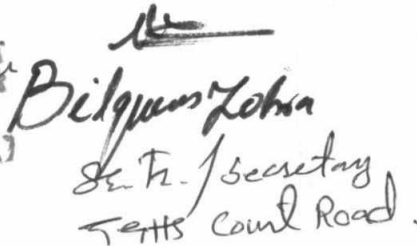 Bilquees Zohra
Sr. Tr. / Secretary
Court Road.